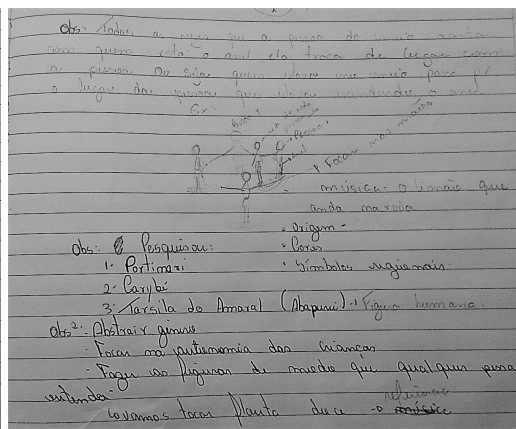 obs: Todas as vezes que a pessoa do meio acertar
com quem está o anel ela troca de lugar com
a pessoa. Ou seja quem estava no meio passa p/
o lugar da pessoa que estava escondendo o anel.
Ex:
Pessoa
anel
Focar nas mãos
música: o limão que
anda na roda
Obs: Pesquisar:
• Origem -
1- Portinari
• Cores
2- Carybé
• Símbolos regionais
3- Tarsila do Amaral (Abapuru) → Figura humana.
Obs²: Abstrair
- Focar na autonomia das crianças
- Fazer as figuras de modo que qualquer pessoa
entenda
Vamos focar
música